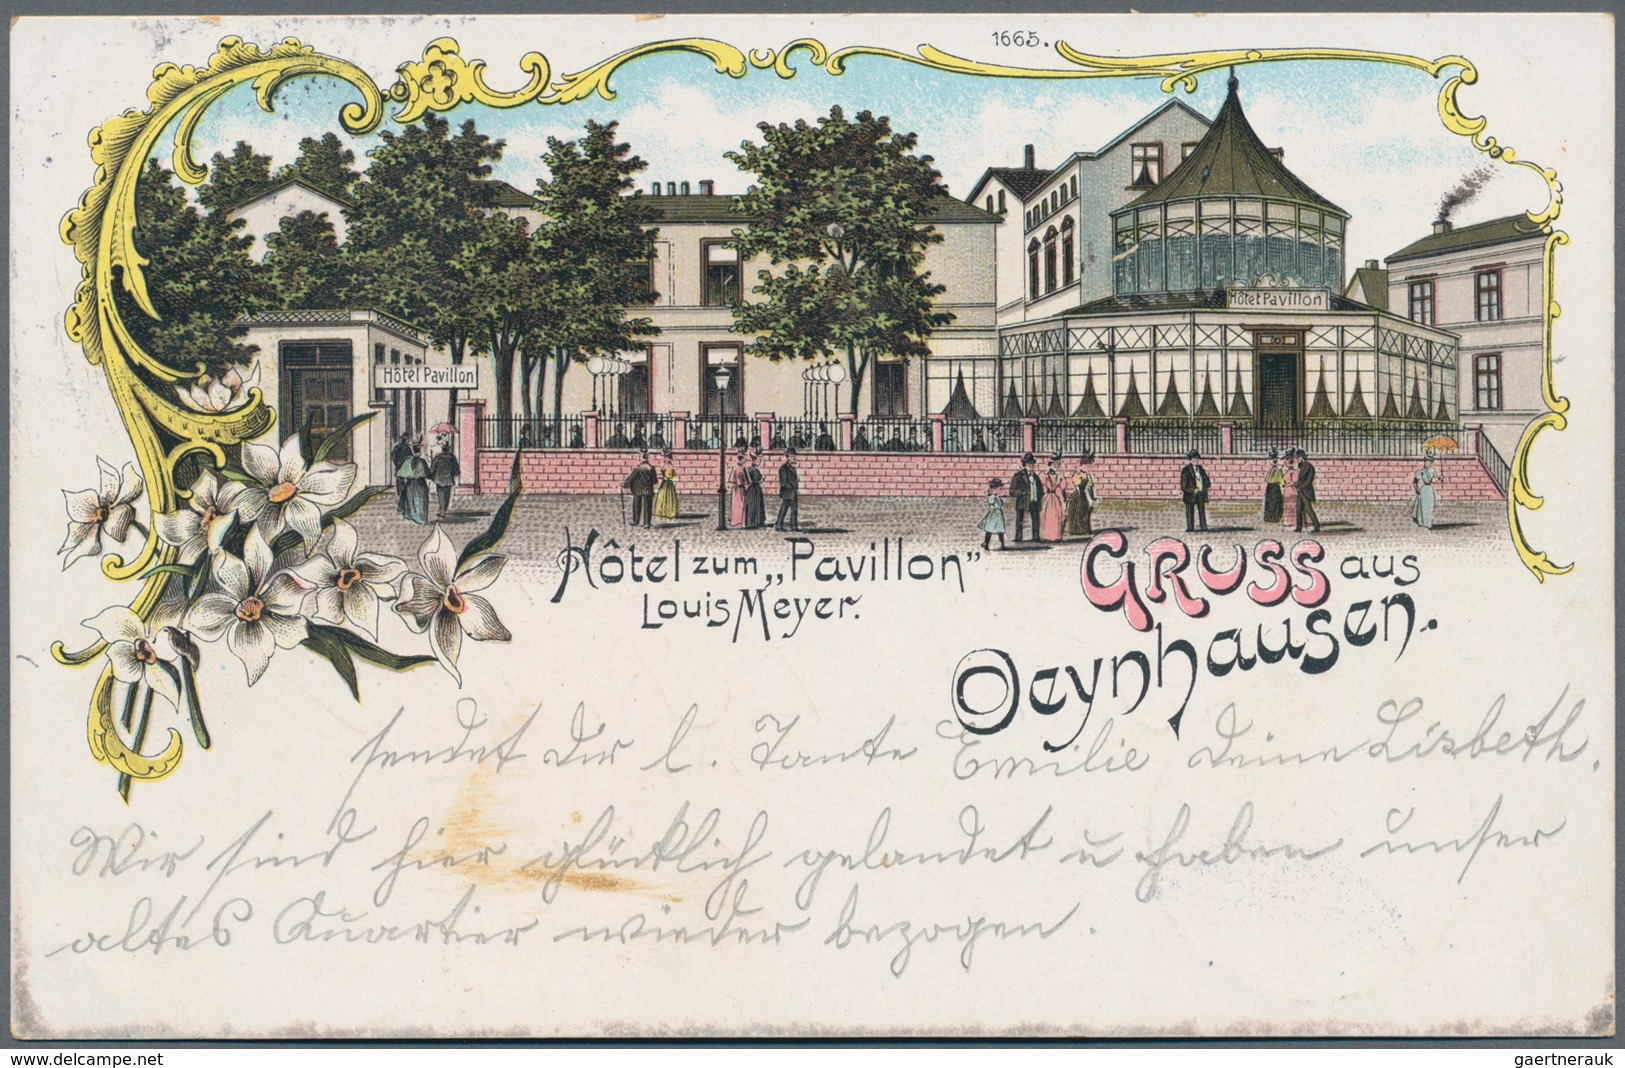 1665.
Hôtel Pavillon
Hôtel Pavillon
Hôtel zum „Pavillon"
Louis Meyer.
GRUSS aus
Oeynhausen.
sendet der l. Tante Emilie deine Lisbeth.
Wir sind hier glücklich gelandet u haben unser
altes Quartier wieder bezogen.
www.delcampe.net
gaertnerauk